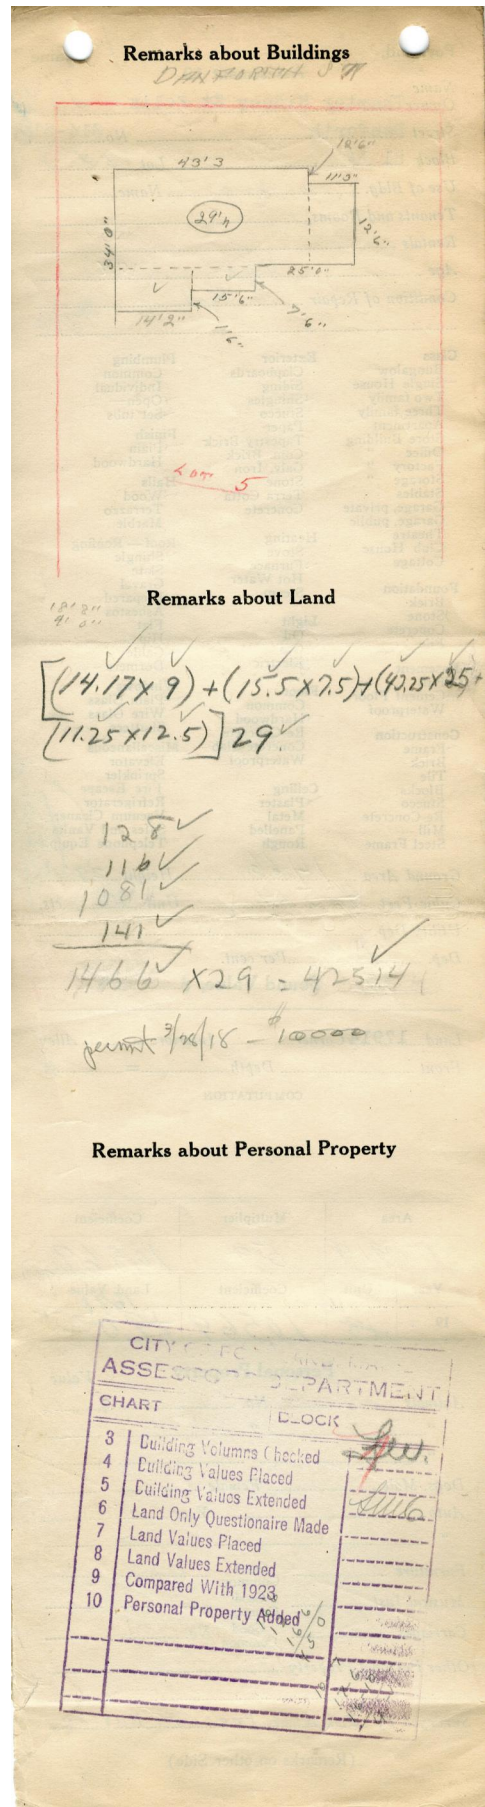 Remarks about Buildings
DANFORTH ST
12'6"
43'3
11'3"
29'h
34'0"
12'6"
25'0"
15'6"
7'6"
14'2"
1'6"
LOT 5
Remarks about Land
18'2"
9'0"
[(14.17 X 9) + (15.5 X 7.5) + (43.25 X 25 +
(11.25 X 12.5)] 29.
128
116
1081
141
1466 X 29 = 42514
permit 3/28/18 - $10000
Remarks about Personal Property
CITY
ASSESSORS DEPARTMENT
CHART BLOCK
3 Building Volumns Checked
4 Building Values Placed
5 Building Values Extended
6 Land Only Questionaire Made
7 Land Values Placed
8 Land Values Extended
9 Compared With 1923
10 Personal Property Added